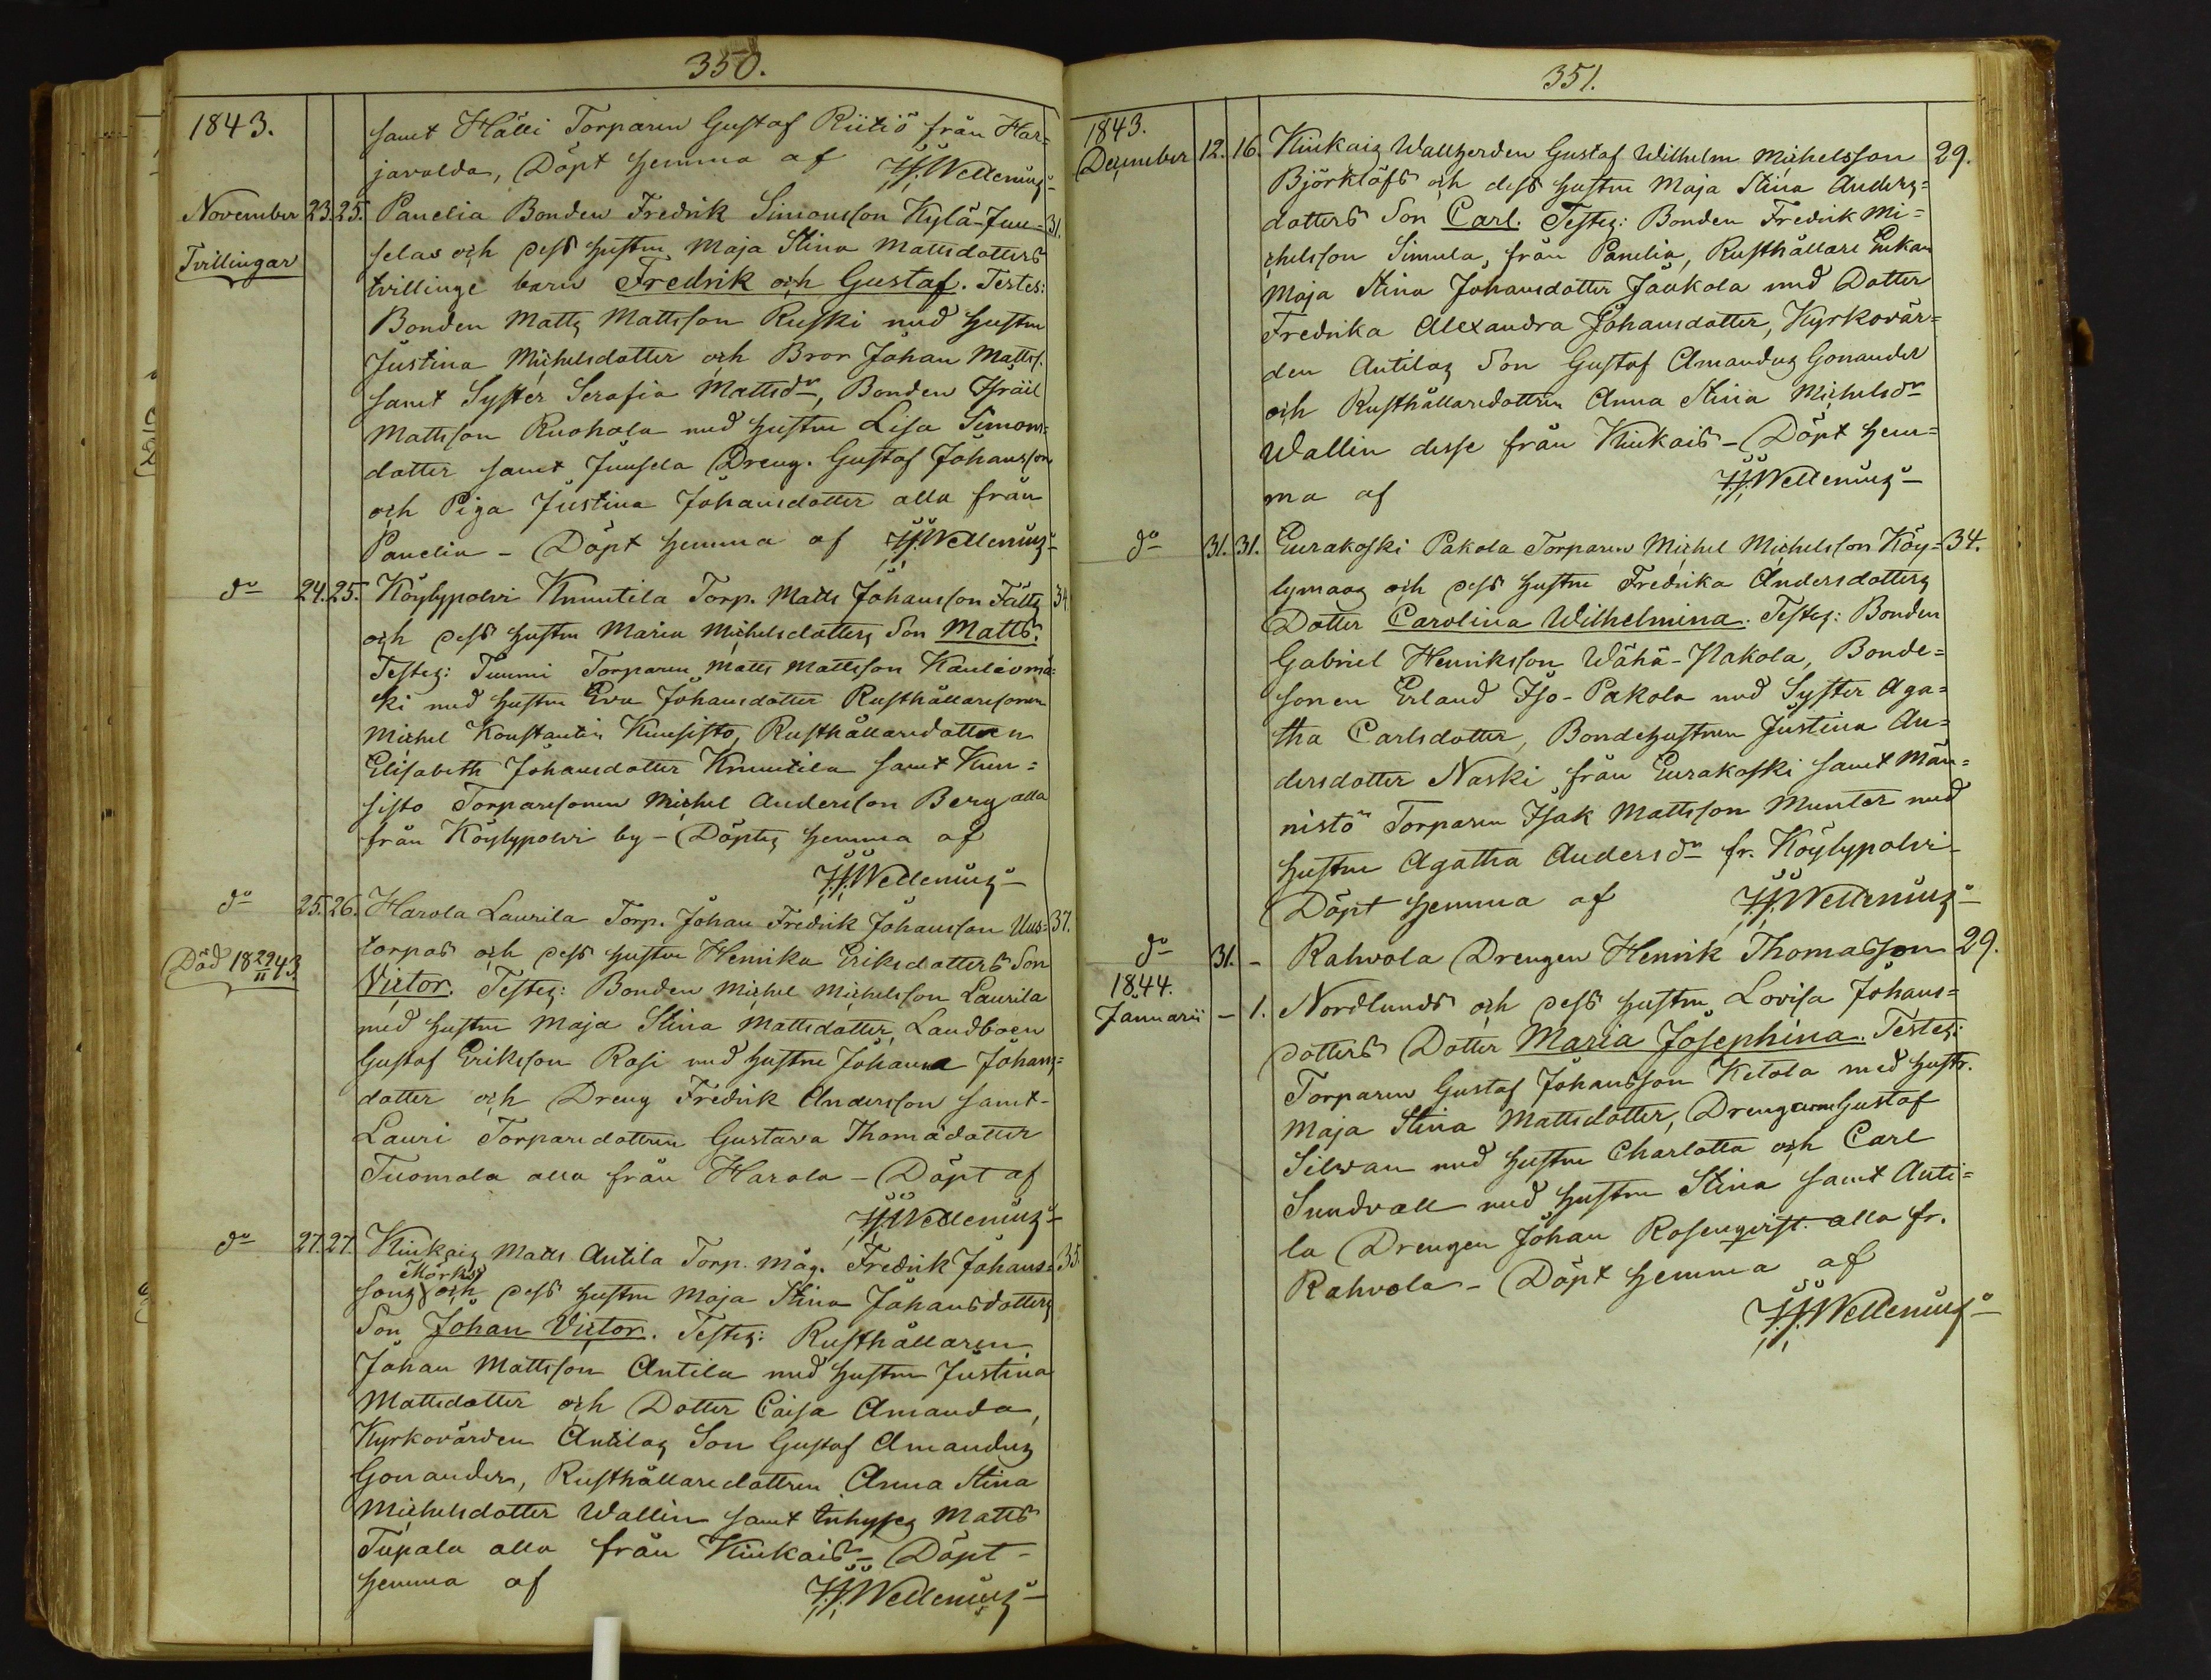 350.
1843.
samt Hälli Torparen Gustaf Riitiö från Har=
javalda, Döpt hemma af J.J.Wellenius
November 23. 25. Panelia Bonden Fredrik Simonsson Kylä-Juu= 31.
Tvillingar
selas och dess hustru Maja Stina Mattsdotters
tvillinge barn Fredrik och Gustaf. Testes:
Bonden Matts Mattsson Ruski med hustru
Justina Michelsdotter och Bror Johan Mattss.
samt Syster Serafia Mattsdr, Bonden Israil
Mattsson Ruohola med hustru Lisa Simons=
dotter samt Juusela Dreng. Gustaf Johansson
och Piga Justina Johansdotter alla från
Panelia - Döpt hemma af J.J.Wellenius
do 24. 25. Köylypolvi Knuutila Torp. Matts Johansson Fälts 34
och dess hustru Maria Michelsdotters Son Matts.
Testes: Tuumi Torparen Matts Mattsson Kauliomä=
ki med hustru Eva Johansdotter Rusthållaresonen
Michel Konstantin Kuusisto, Rusthållaredottren
Elisabeth Johansdotter Knuutila samt Kuu=
sisto Torparesonen Michel Andersson Berg alla
från Köylypolvi by - Döptes hemma af
J.J.Wellenius
do 25. 26. Harola Laurila Torp. Johan Fredrik Johansson Uus= 37.
Död 18 29/11 43
torpas och dess hustru Henrika Eriksdotters Son
Victor. Testes: Bonden Michel Michelsson Laurila
med hustru Maja Stina Mattsdotter, Landboen
Gustaf Eriksson Rosi med hustru Johanna Johans=
dotter och Dreng Fredrik Andersson samt
Lauri Torparedottren Gustava Thomädotter
Tuomola alla från Harola - Döpt af
J.J.Wellenius
do 27. 27. Kiukais Matts Antila Torp. måg. Fredrik Johans= 35.
Mörks
sons och dess hustru Maja Stina Johansdotters
Son Johan Victor. Testes: Rusthållaren
Johan Mattsson Antila med hustru Justina
Mattsdotter och Dotter Caisa Amanda,
Kyrkovärden Antilas Son Gustaf Amandus
Gonander, Rusthållaredottren Anna Stina
Michelsdotter Wallin samt Inhyses Matts
Tupala alla från Kiukais - Döpt
hemma af J.J.Wellenius
351.
1843.
December 12. 16. Kiukais Wallherden Gustaf Wilhelm Michelsson 29.
Björklöfs och dess hustru Maja Stina Anders=
dotters Son Carl. Testes: Bonden Fredrik Mi=
chelsson Simula, från Panelia, Rusthållare Enkan
Maja Stina Johansdotter Jaakola med Dotter
Fredrika Alexandra Johansdotter, Kyrkovär=
den Antilas Son Gustaf Amandus Gonander
och Rusthållaredottren Anna Stina Michelsdr
Wallin desse från Kiukais - Döpt hem=
ma af J.J.Wellenius
do 31. 31. Eurakoski Pakola Torparen Michel Michelsson Köy= 34.
lymaas och dess hustru Fredrika Andersdotters
Dotter Carolina Wilhelmina. Testes: Bonden
Gabriel Henriksson Wähä-Pakola, Bonde=
sonen Erland Iso-Pakola med Syster Aga=
tha Carlsdotter, Bondehustrun Justina An=
dersdotter Naski från Eurakoski samt Män=
nistö Torparen Isak Mattsson Munter med
hustru Agatha Andersdr fr. Köylypolvi -
Döpt hemma af J.J.Wellenius
do 31. - Rahvola Drengen Henrik Thomasson 29.
1844.
Januarii - 1. Nordlunds och dess hustru Lovisa Johans=
dotters Dotter Maria Josephina. Testes:
Torparen Gustaf Johansson Ketola med hustr.
Maja Stina Mattsdotter, Drengarne Gustaf
Silwan med hustru Charlotta och Carl
Sundvall med hustru Stina samt Anti=
la Drengen Johan Rosenqvist alla fr.
Rahvola - Döpt hemma af
J.J.Wellenius